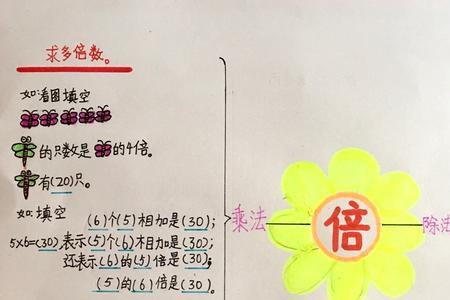 求多倍数。
如:看图填空
的只数是 的4倍。
有(20)只。
如:填空
(6)个(5)相加是(30);
5×6=(30)表示(5)个(6)相加是(30);
还表示(6)的(5)倍是(30);
(5)的(6)倍是(30)。
乘法
倍
除法